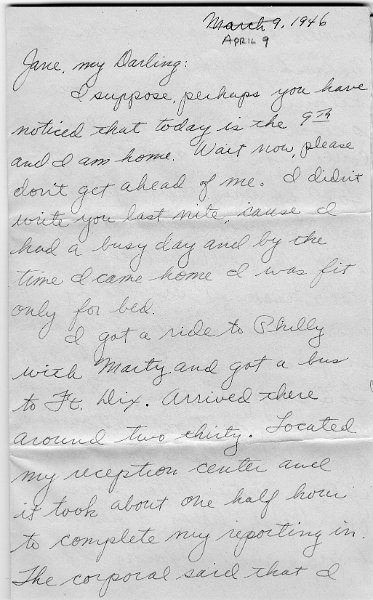 March 9, 1946
APRIL 9
Jane, my Darling:
I suppose, perhaps you have
noticed that today is the 9th
and I am home. Wait now, please
don't get ahead of me. I didn't
write you last nite, 'cause I
had a busy day and by the
time I came home I was fit
only for bed.
I got a ride to Philly
with Marty and got a bus
to Ft. Dix. Arrived there
around two thirty. Located
my reception center and
it took about one half hour
to complete my reporting in.
The corporal said that I